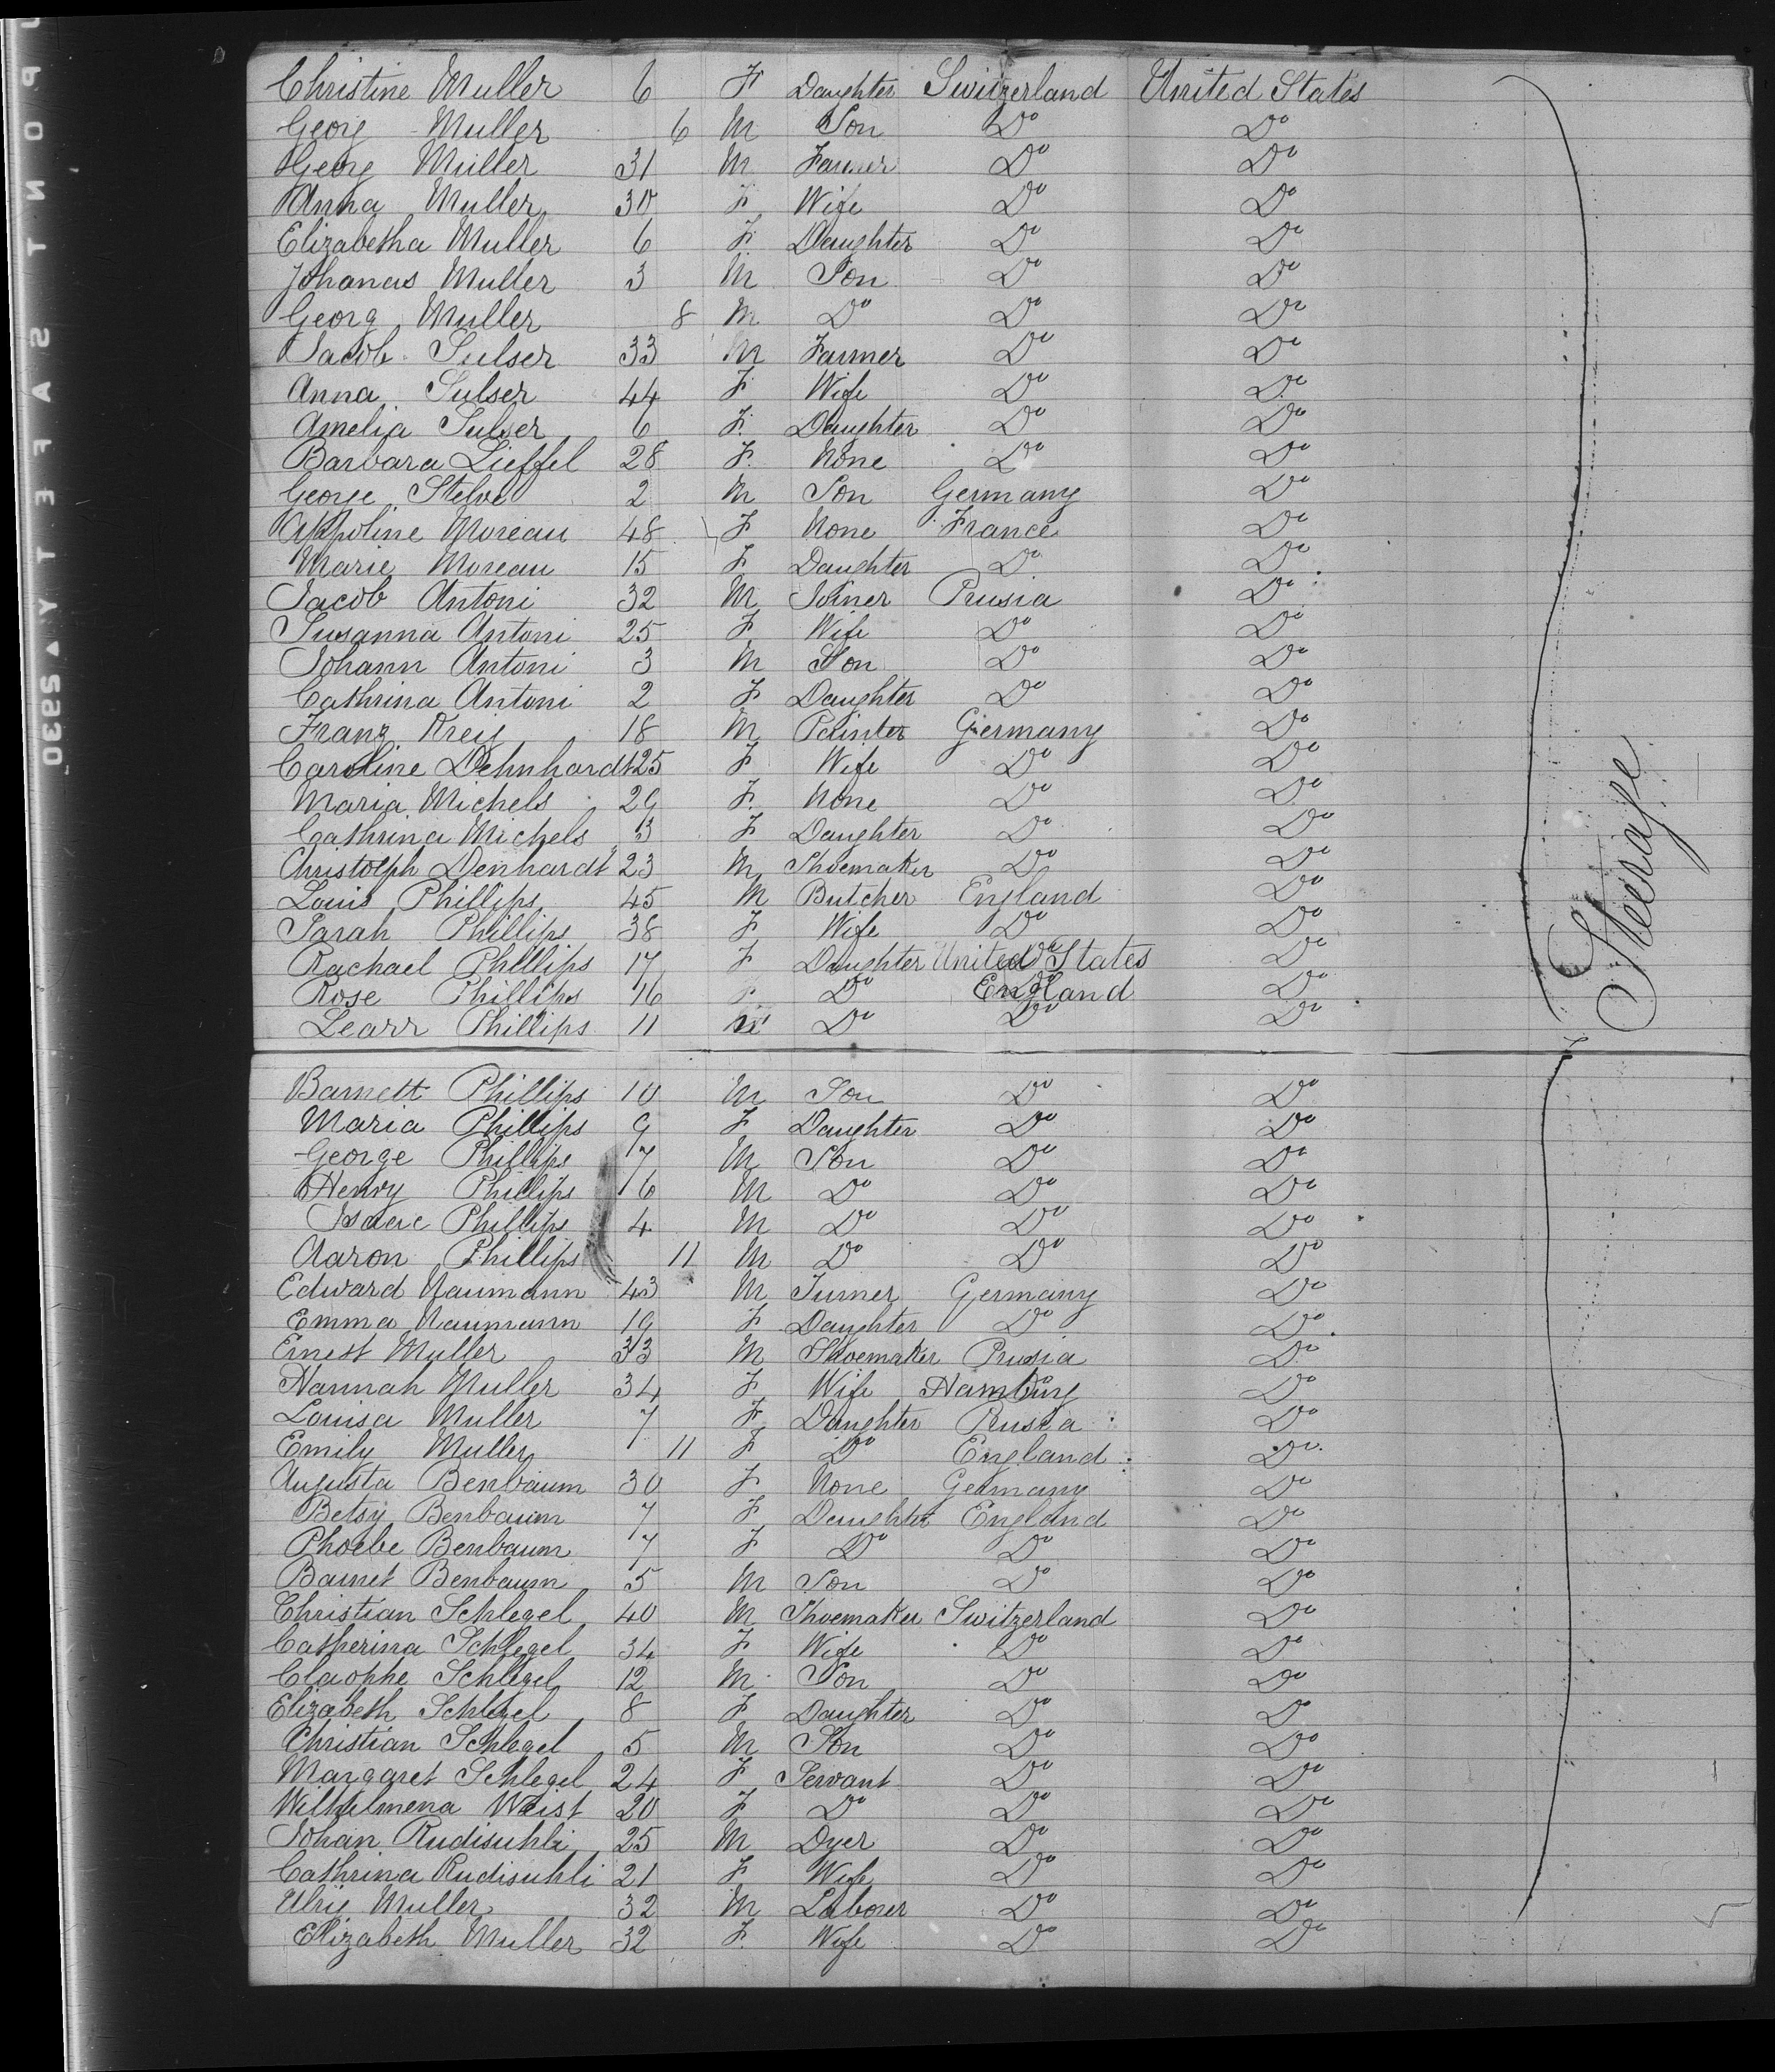 Christine Muller 6 F Daughter Switzerland United States
Georg Muller 6 M Son Do Do
Georg Muller 31 M Farmer Do Do
Anna Muller 30 F Wife Do Do
Elizabetha Muller 6 F Daughter Do Do
Johanas Muller 3 M Son Do Do
Georg Muller 8 M Do Do Do
Jacob Sulser 33 M Farmer Do Do
Anna Sulser 44 F Wife Do Do
Amelia Sulser 6 F. Daughter Do Do
Barbara Lieffel 28 F. None Do Do
George 2 M Son Germany Do
Appoline Moreau 48 F None France Do
Marie Moreau 15 F Daughter Do Do
Jacob Antoni 32 M Joiner Prusia Do
Susanna Antoni 25 F Wife Do Do
Johann Antoni 3 M Son Do Do
Cathrina Antoni 2 F Daughter Do Do
Franz Kreig 18 M Painter Germany Do
Caroline Dehnhardt 25 F Wife Do Do
Maria Michels 29 F. None Do Do
Cathrina Michels 3 F Daughter Do Do
Christolph Denhardt 23 M Shoemaker Do Do
Louis Phillips 45 M Butcher England Do
Sarah Phillips 38 F Wife Do Do
Rachael Phillips 17 F Daughter United States Do
Rose Phillips 16 Do England Do
Learr Phillips 11 Do Do Do
Steerage
Barnett Phillips 10 M Son Do Do
Maria Phillips 9 F Daughter Do Do
George Phillips 7 M Son Do Do
Henry Phillips 6 M Do Do Do
Isaac Phillips 4 M Do Do Do
Aaron Phillips 11 M Do Do Do
Edward Naumann 43 M Turner Germany Do
Emma Naumann 19 F Daughter Do Do
Ernest Muller 33 M Shoemaker Prusia Do
Hannah Muller 34 F Wife Hamburg Do
Louisa Muller 7 F Daughter Prusia Do
Emily Muller 11 F Do England Do
Augusta Benbaum 30 F None Germany Do
Betsy Benbaum 7 F Daughter England Do
Phoebe Benbaum 7 F Do Do Do
Barnet Benbaum 5 M Son Do Do
Christian Schlegel 40 M Shoemaker Switzerland Do
Catherina Schlegel 34 F Wife Do Do
Claophe Schlegel 12 M Son Do Do
Elizabeth Schlegel 8 F Daughter Do Do
Christian Schlegel 5 M Son Do Do
Margaret Schlegel 24 F Servant Do Do
Wilhilmena Weist 20 F Do Do Do
Johan Rudisuhli 25 M Dyer Do Do
Cathrina Rudisuhli 21 F Wife Do Do
Ulrig Muller 32 M Laborer Do Do
Elizabeth Muller 32 F. Wife Do Do
SAFETY 5930